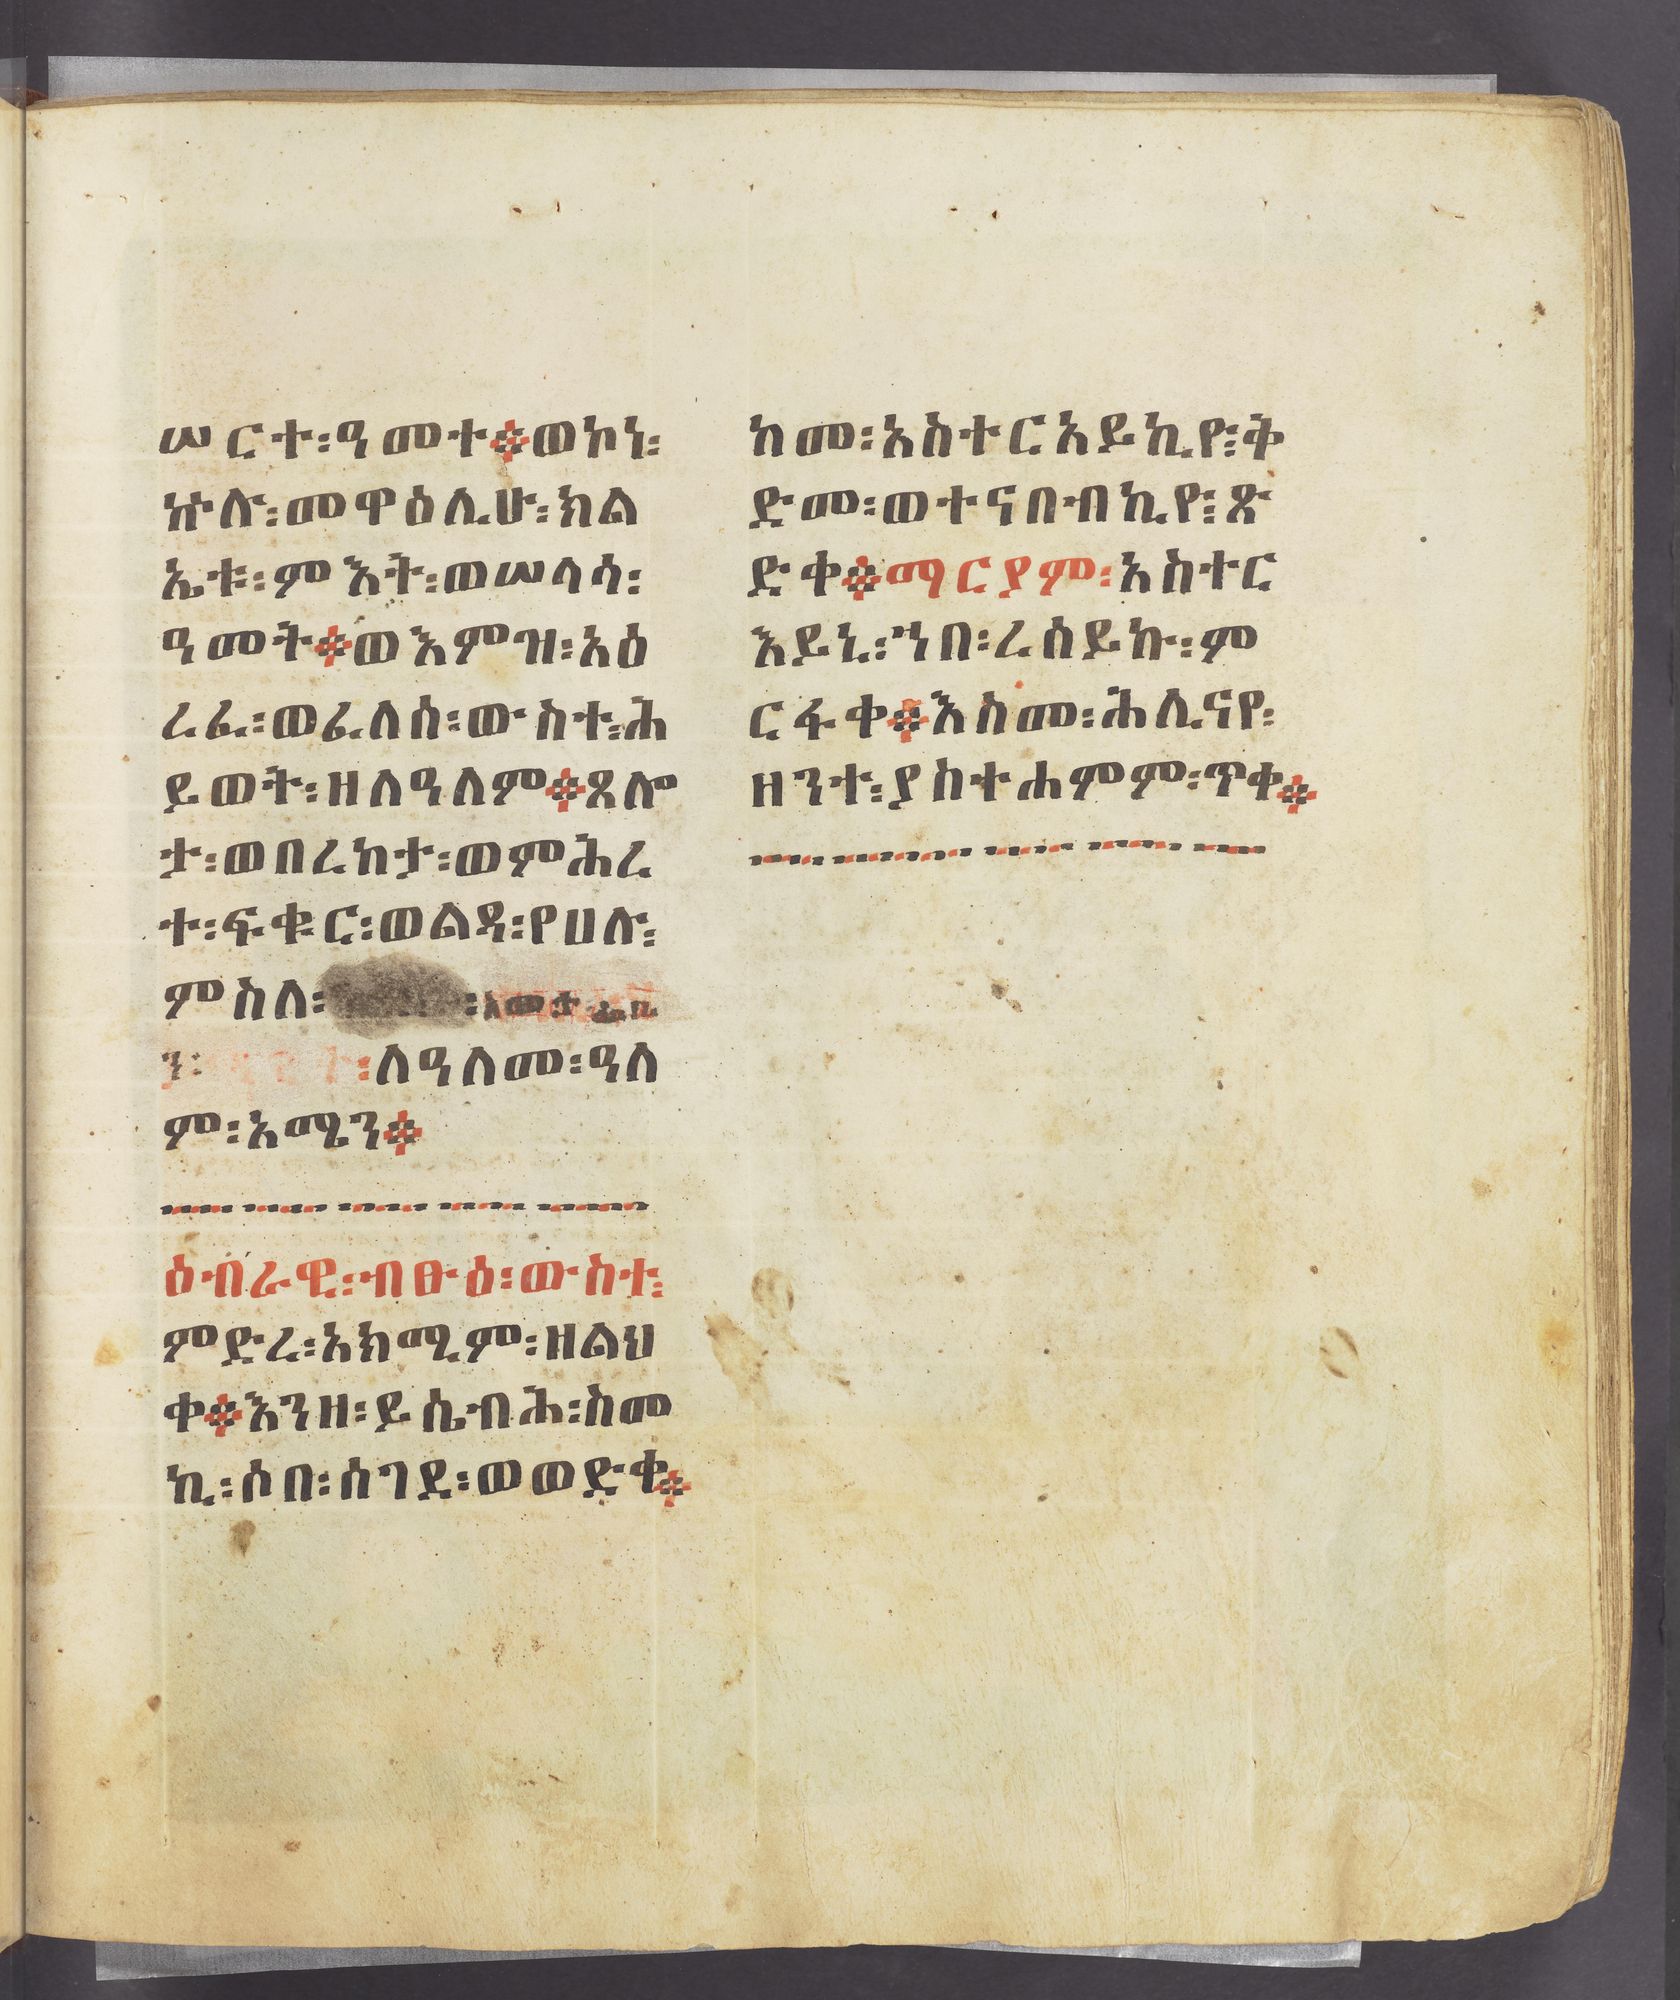 ሠርተ፡ዓመተ፨ወኮነ፡
ኵሉ፡መዋዕሊሁ፡ክል
ኤቱ፡ምእት፡ወሠላሳ፡
ዓመት፨ወእምዝ፡አዕ
ረፈ፡ወፈለሰ፡ውስተ፡ሕ
ይወት፡ዘለዓለም፨ጸሎ
ታ፡ወበረከታ፡ወምሕረ
ተ፡ፍቁር፡ወልዳ፡የሀሉ፡
ምስለ፡ ፡አመታ
ን፡ ፡ለዓለመ፡ዓለ
ም፡አሜን፨
ዕብራዊ፡ብፁዕ፡ውስተ፡
ምድረ፡አክሚም፡ዘልህ
ቀ፨እንዘ፡ይሴብሕ፡ስመ
ኪ፡ሶበ፡ሰገደ፡ወወድቀ፨
ከመ፡አስተርአይኪዮ፡ቅ
ድመ፡ወተናበብኪዮ፡ጽ
ድቀ፨ማርያም፡አስተር
እይኒ፡ኀበ፡ረሰይኩ፡ም
ርፋቀ፨እስመ፡ሕሊናየ፡
ዘንተ፡ያስተሐምም፡ጥቀ፨